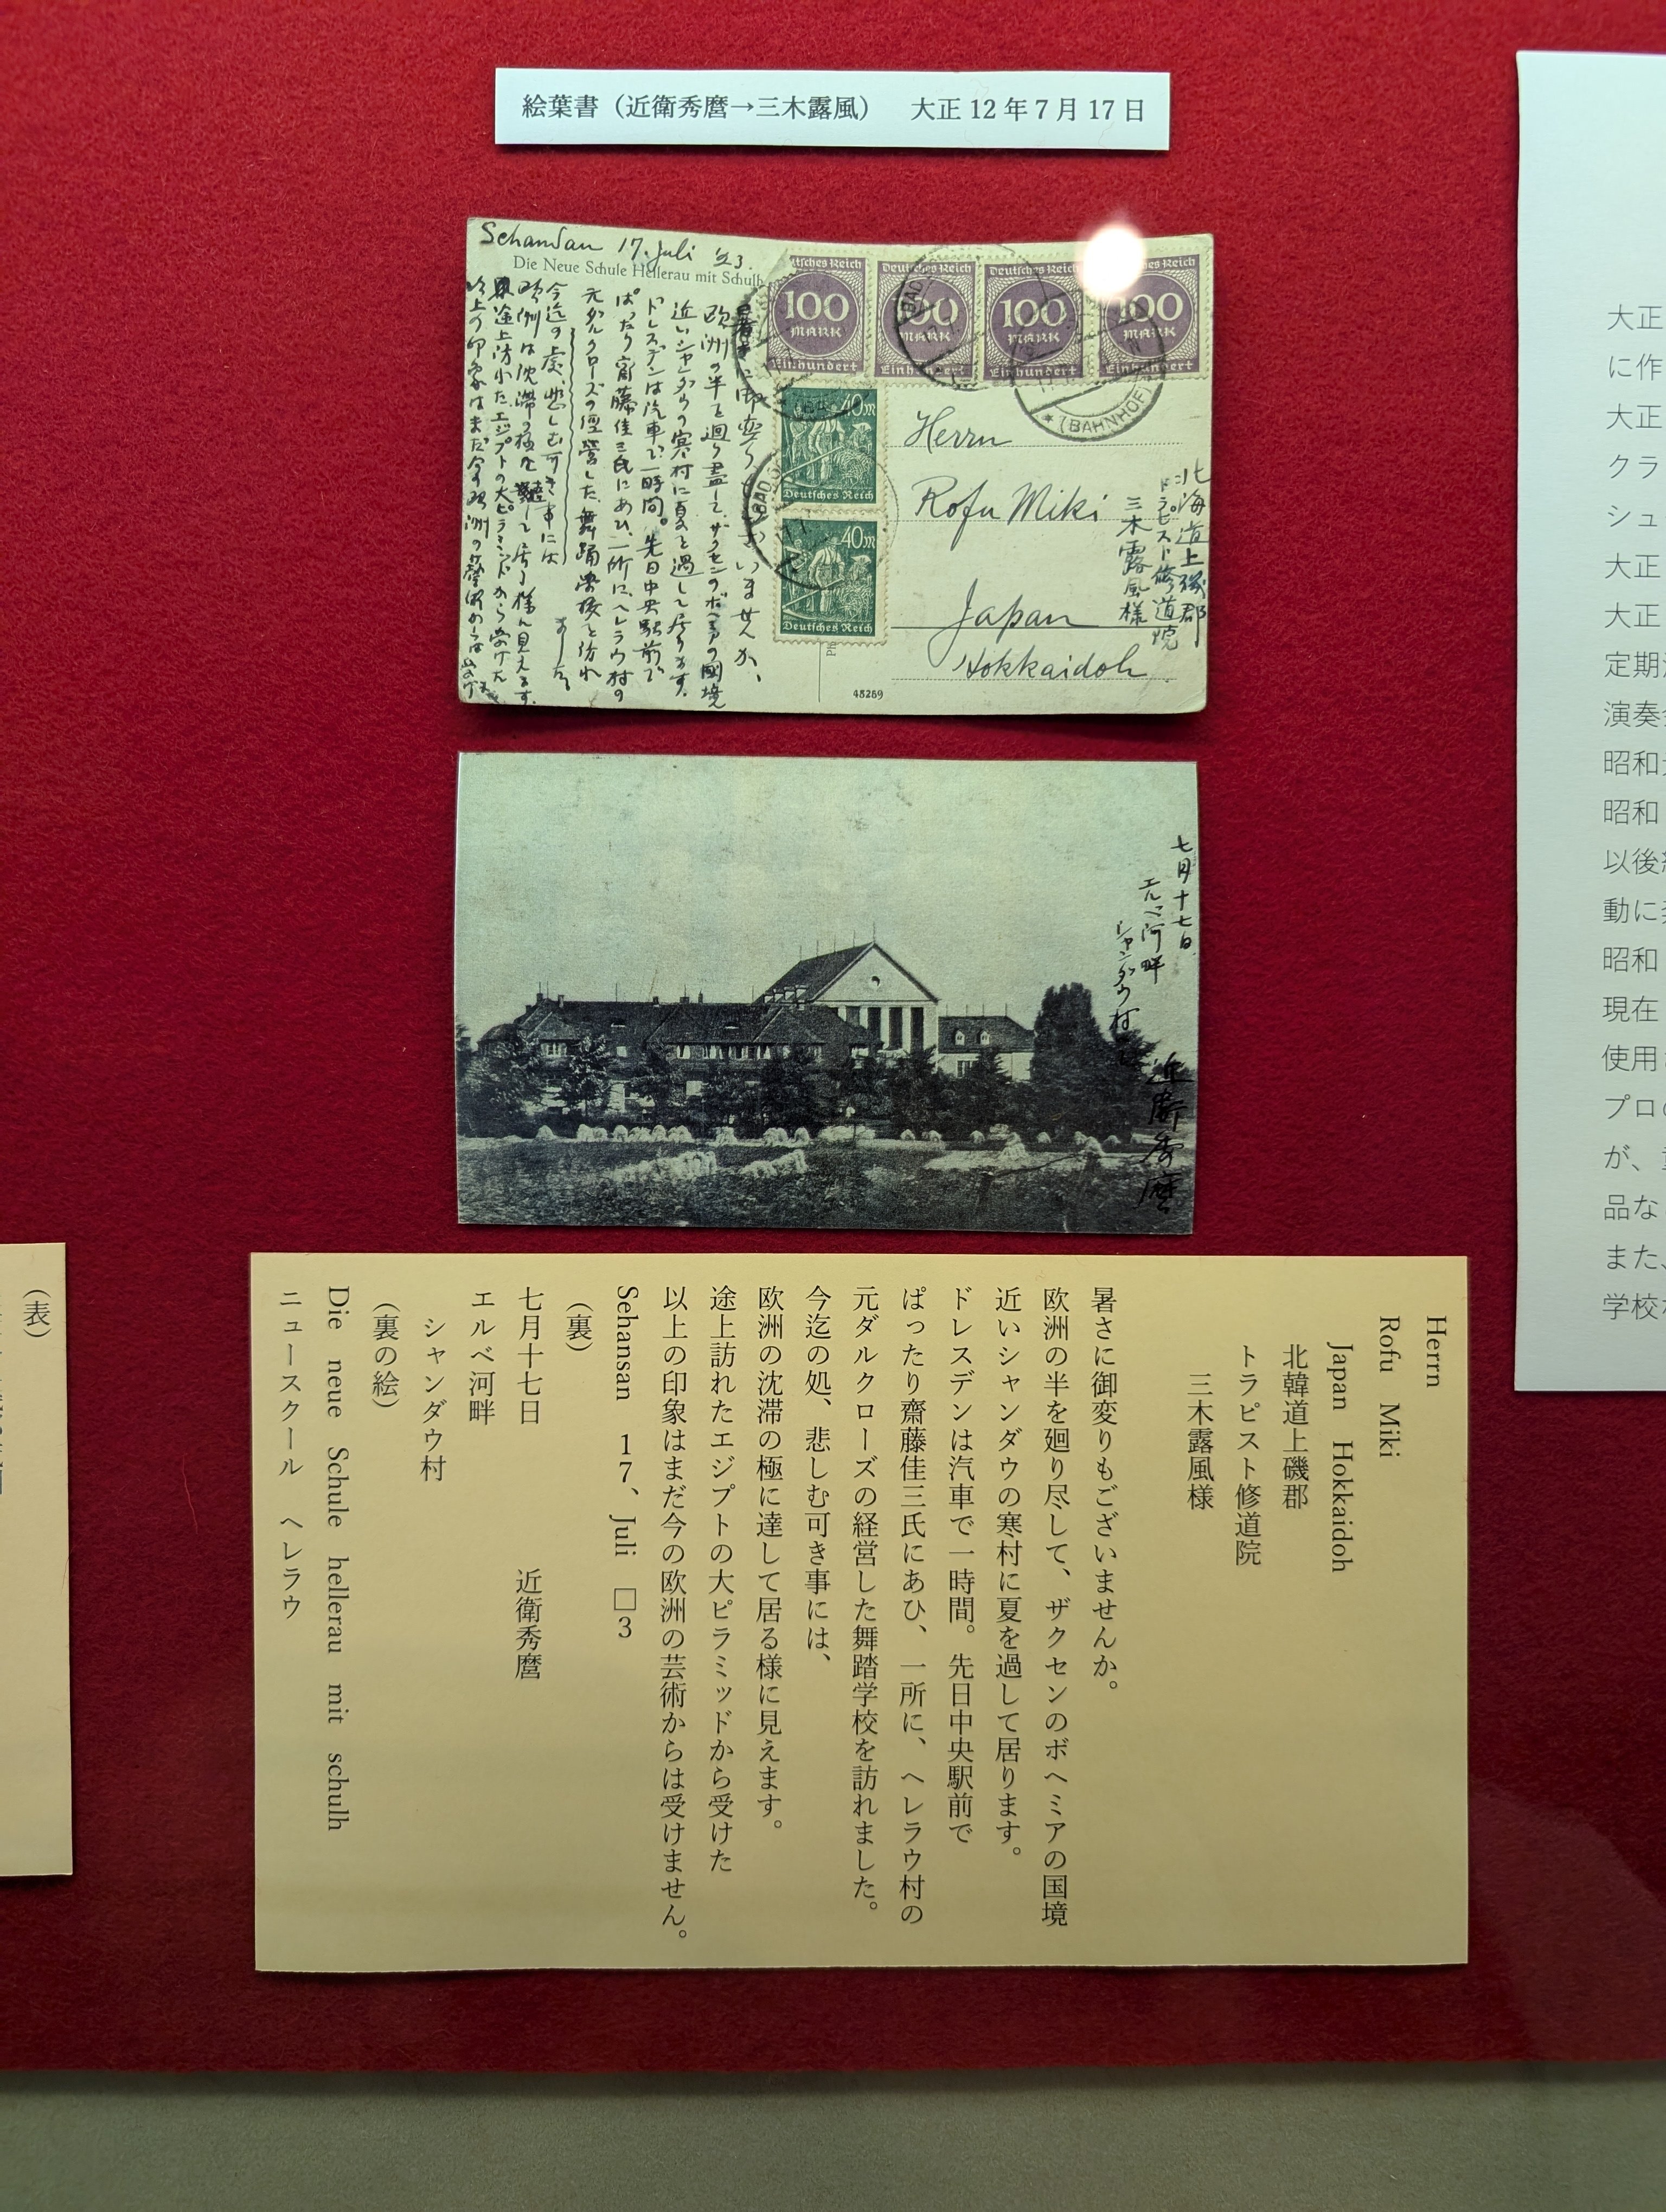 絵葉書（近衛秀麿→三木露風）　大正12年7月17日
Schandau 17. Juli '23.
Die Neue Schule Hellerau mit Schulh
暑さに御変りもございませんか、
欧洲の半を廻り盡して、ザクセンのボヘミアの國境
近いシャンダウの寒村に夏を過して居ります。
ドレスデンは汽車で一時間。先日中央駅前で
ぱったり齋藤佳三氏にあひ、一所に、ヘレラウ村の
元ダルクローズの經營した舞踊學校を訪れ
ました。
今迄の處、悲しむ可き事には
欧洲は沈滞の極に達して居る様に見えます。
途上訪れたエジプトの大ピラミッドから受けた
以上の印象はまだ今の欧洲の藝術からは受けません
Deutsches Reich
100
MARK
Einhundert
Deutsches Reich
100
MARK
Einhundert
Deutsches Reich
100
MARK
Einhundert
100
MARK
Einhundert
40m
Deutsches Reich
40m
Deutsches Reich
BAD
(BAHNHOF)
BAD
Herrn
Rofu Miki
Japan
Hokkaidoh
北海道上磯郡
トラピスト修道院
三木露風様
48269
七月十七日
エルベ河畔
シャンダウ村
近衛秀麿
Herrn
Rofu Miki
Japan Hokkaidoh
北韓道上磯郡
トラピスト修道院
三木露風様
暑さに御変りもございませんか。
欧洲の半を廻り尽して、ザクセンのボヘミアの国境
近いシャンダウの寒村に夏を過して居ります。
ドレスデンは汽車で一時間。先日中央駅前で
ぱったり齋藤佳三氏にあひ、一所に、ヘレラウ村の
元ダルクローズの経営した舞踏学校を訪れました。
今迄の処、悲しむ可き事には、
欧洲の沈滞の極に達して居る様に見えます。
途上訪れたエジプトの大ピラミッドから受けた
以上の印象はまだ今の欧洲の芸術からは受けません。
Sehansan 17、Juli □3
（裏）
七月十七日　近衛秀麿
エルベ河畔
シャンダウ村
（裏の絵）
Die neue Schule hellerau mit schulh
ニュースクール ヘレラウ
（表）
大正
に作
大正
クラ
シュ
大正
大正
定期
演奏
昭和
昭和
以後
動に
昭和
現在
使用
プロ
が、
品な
また、
学校